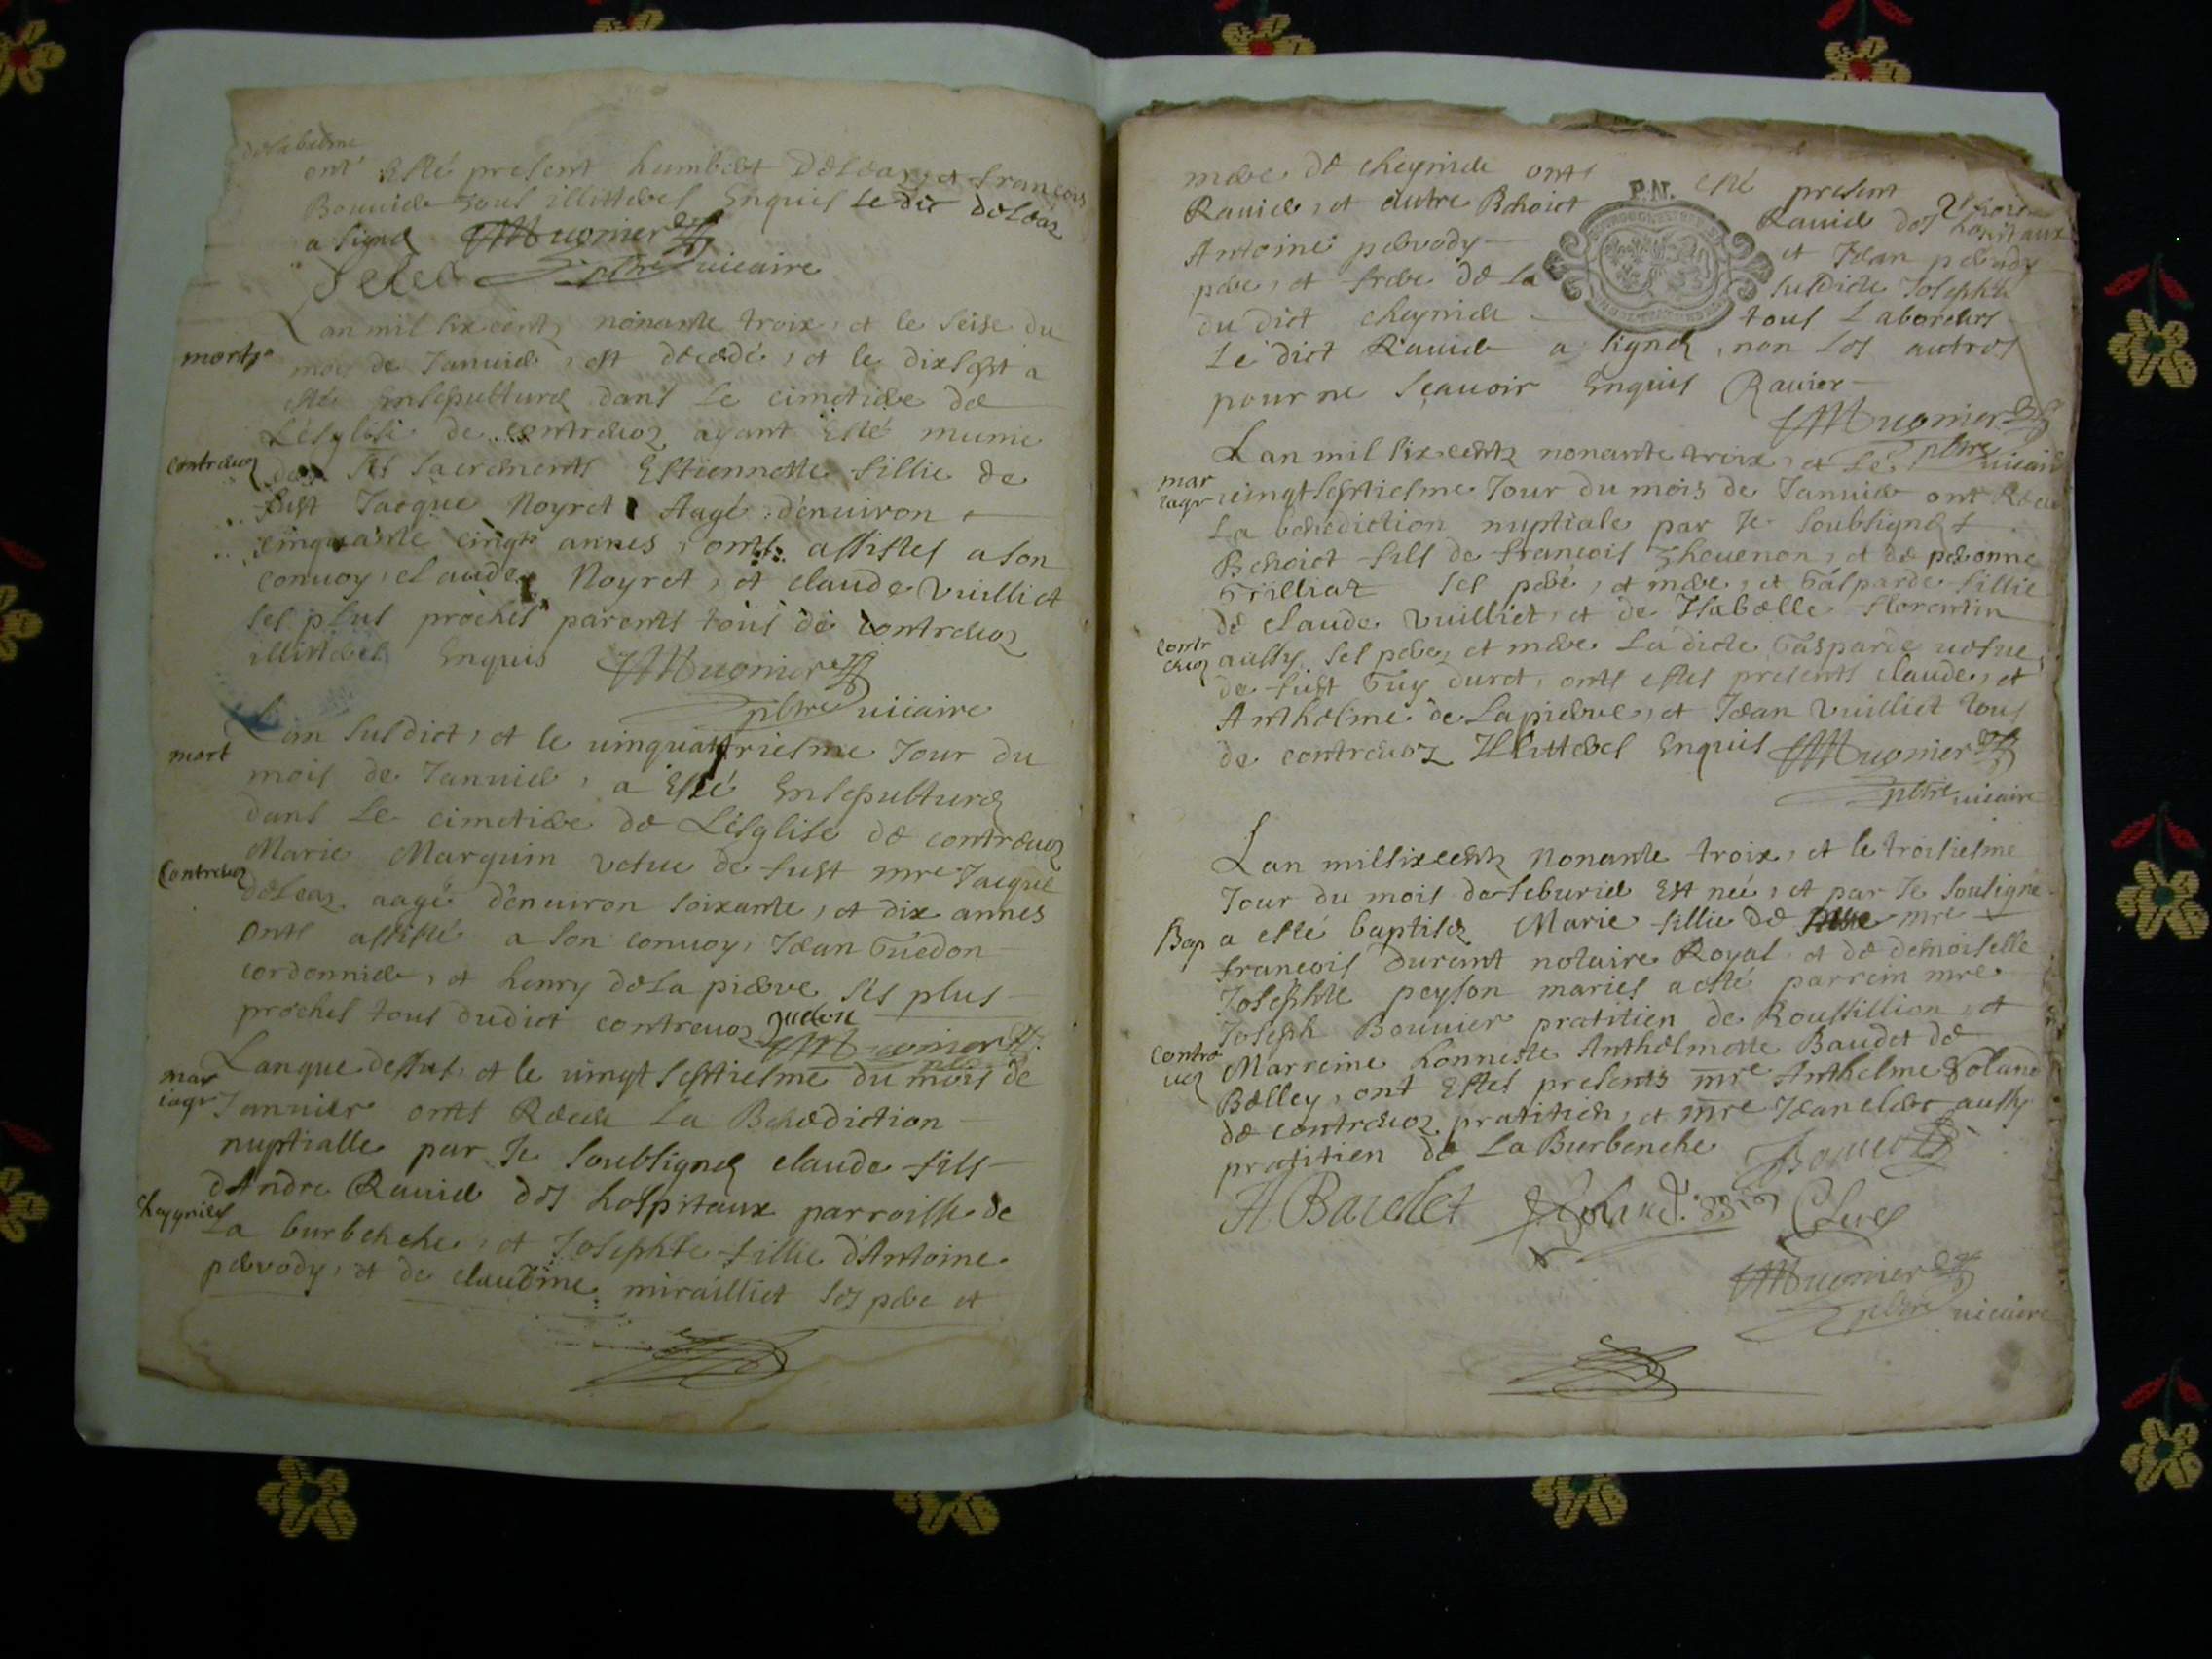 delabalme
ont Esté present humbert Deleaz, et francois
Bouuier tous illitteres Enquis Le dit deleaz
a signé JMugnier
pbre vicaire
mort
Lan mil six cents nonante troix, et le seise du
mois de Januier, est decedé, et le dixsept a
esté Ensepulturé dans le cimetiere de
contreuoz
L'esglise de contreuoz ayant Esté munie
des ses sacrements Estiennette fillie de
fust Jacque Noyret Aagé d'enuiron
cinquante cinq annes, onts assistes a son
conuoy, claude Noyret, et claude Vuilliet
ses plus proches parents tous de contreuoz
illitteres Enquis JMugnier
pbre vicaire
mort
Lan susdict, et le uinquattriesme Jour du
mois de Januier, a Esté Ensepulturé
dans Le cimetiere de L'esglise de contreuoz
Contreuoz
Marie Marquin vefue de fust mre Jacque
deleaz aagé d'enuiron soixante, et dix annes
onts assisté a son conuoy, Jean Guedon
cordonnier, et henry dela pierre ses plus
proches tous dudict contreuoz Guedon
JMugnier
mar
iage
Lan que dessus, et le uingt septiesme du mois de
Januier onts Receu La Benediction
nuptialle par Je soubsigné claude fils
d'Andre Rauier des hospitaux parroisse de
cheygnieu
La burbenche, et Josephte fillie d'Antoine
peruody, et de claudine mirailliet ses pere et
mere de cheynieu onts esté present
P.N.
Rauier, et autre Benoict Rauier des hospitaux
Antoine peruody et Jean peruody
pere, et frere de La susdicte Josephte
du dict cheynieu tous Laboreurs
Le dict Rauier a signé, non les autres
pour ne sçauoir Enquis Rauier
JMugnier
pbre uicaire
mar
iage
Lan mil six cents nonante troix, et Le
uingt septiesme Jour du mois de Januier ont Receu
La benediction nuptiale par Je soubsigné
Benoict fils de francois Theuenon, et de peronne
Trilliat ses peré, et mere, et Gasparde fillie
de claude Vuilliet, et de Isabelle florentin
contr
euoz
aussy ses pere, et mere La dicte Gasparde uefue
de fust Guy duret, onts estes presents claude, et
Anthelme de Lapierre, et Jean Vuilliet tous
de contreuoz Illitteres Enquis JMugnier
pbre uicaire
Lan mil six cents Nonante troix, et le troisiesme
Jour du mois de feburier Est neé, et par Je sousigné
Bap
a esté baptisez Marie fillie de mre
francois durant notaire Royal et de demoiselle
Josephte peyson maries a esté parrein mre
Joseph Bouuier pratitien de Roussillion, et
Contre
uoz
Marreine honneste Anthelmette Baudet de
Belley, ont Estes presents mre Anthelme Goland
de contreuoz pratitien, et mre Jean clerc aussy
pratitien de La Burbenche Bouuier
A Baudet Clerc
JMugnier
pbre uicaire